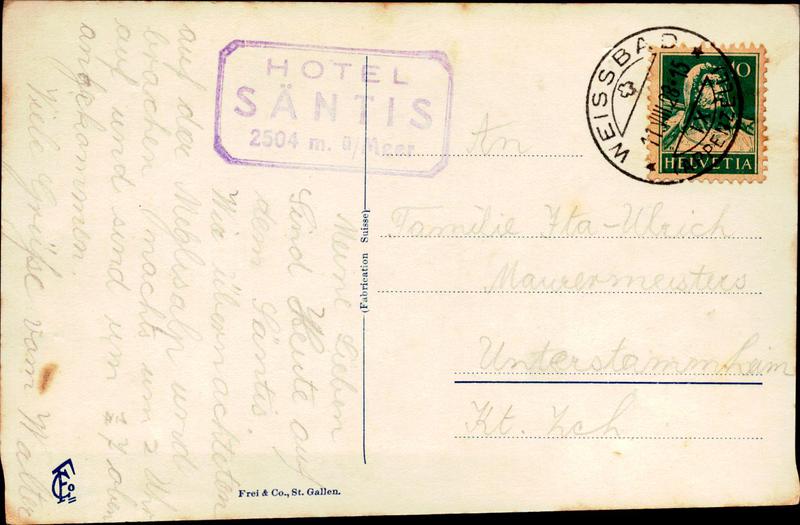 HOTEL
SÄNTIS
2504 m. ü/Meer
WEISSBAD
(APPENZELL)
10
HELVETIA
An
Familie Ita-Ulrich
Maurermeisters
Unterstammheim
Kt. Zch.
(Fabrication Suisse)
Meine Lieben
Sind Heute auf
dem Säntis.
Wir übernachteten
auf der Meglisalp und
brachen nachts um 2 Uhr
auf und sind um ½7 oben
angekommen.
Viele Grüße vom Walter
Frei & Co., St. Gallen.